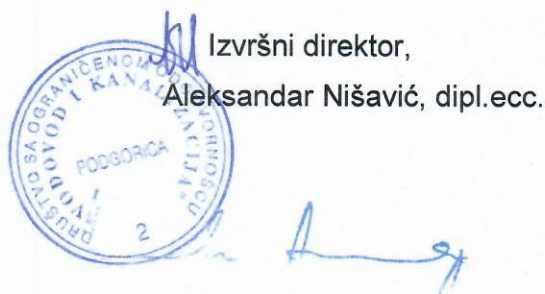 Izvršni direktor,
Aleksandar Nišavić, dipl.ecc.
DRUŠTVO SA OGRANIČENOM ODGOVORNOŠĆU
"VODOVOD I KANALIZACIJA"
PODGORICA
2